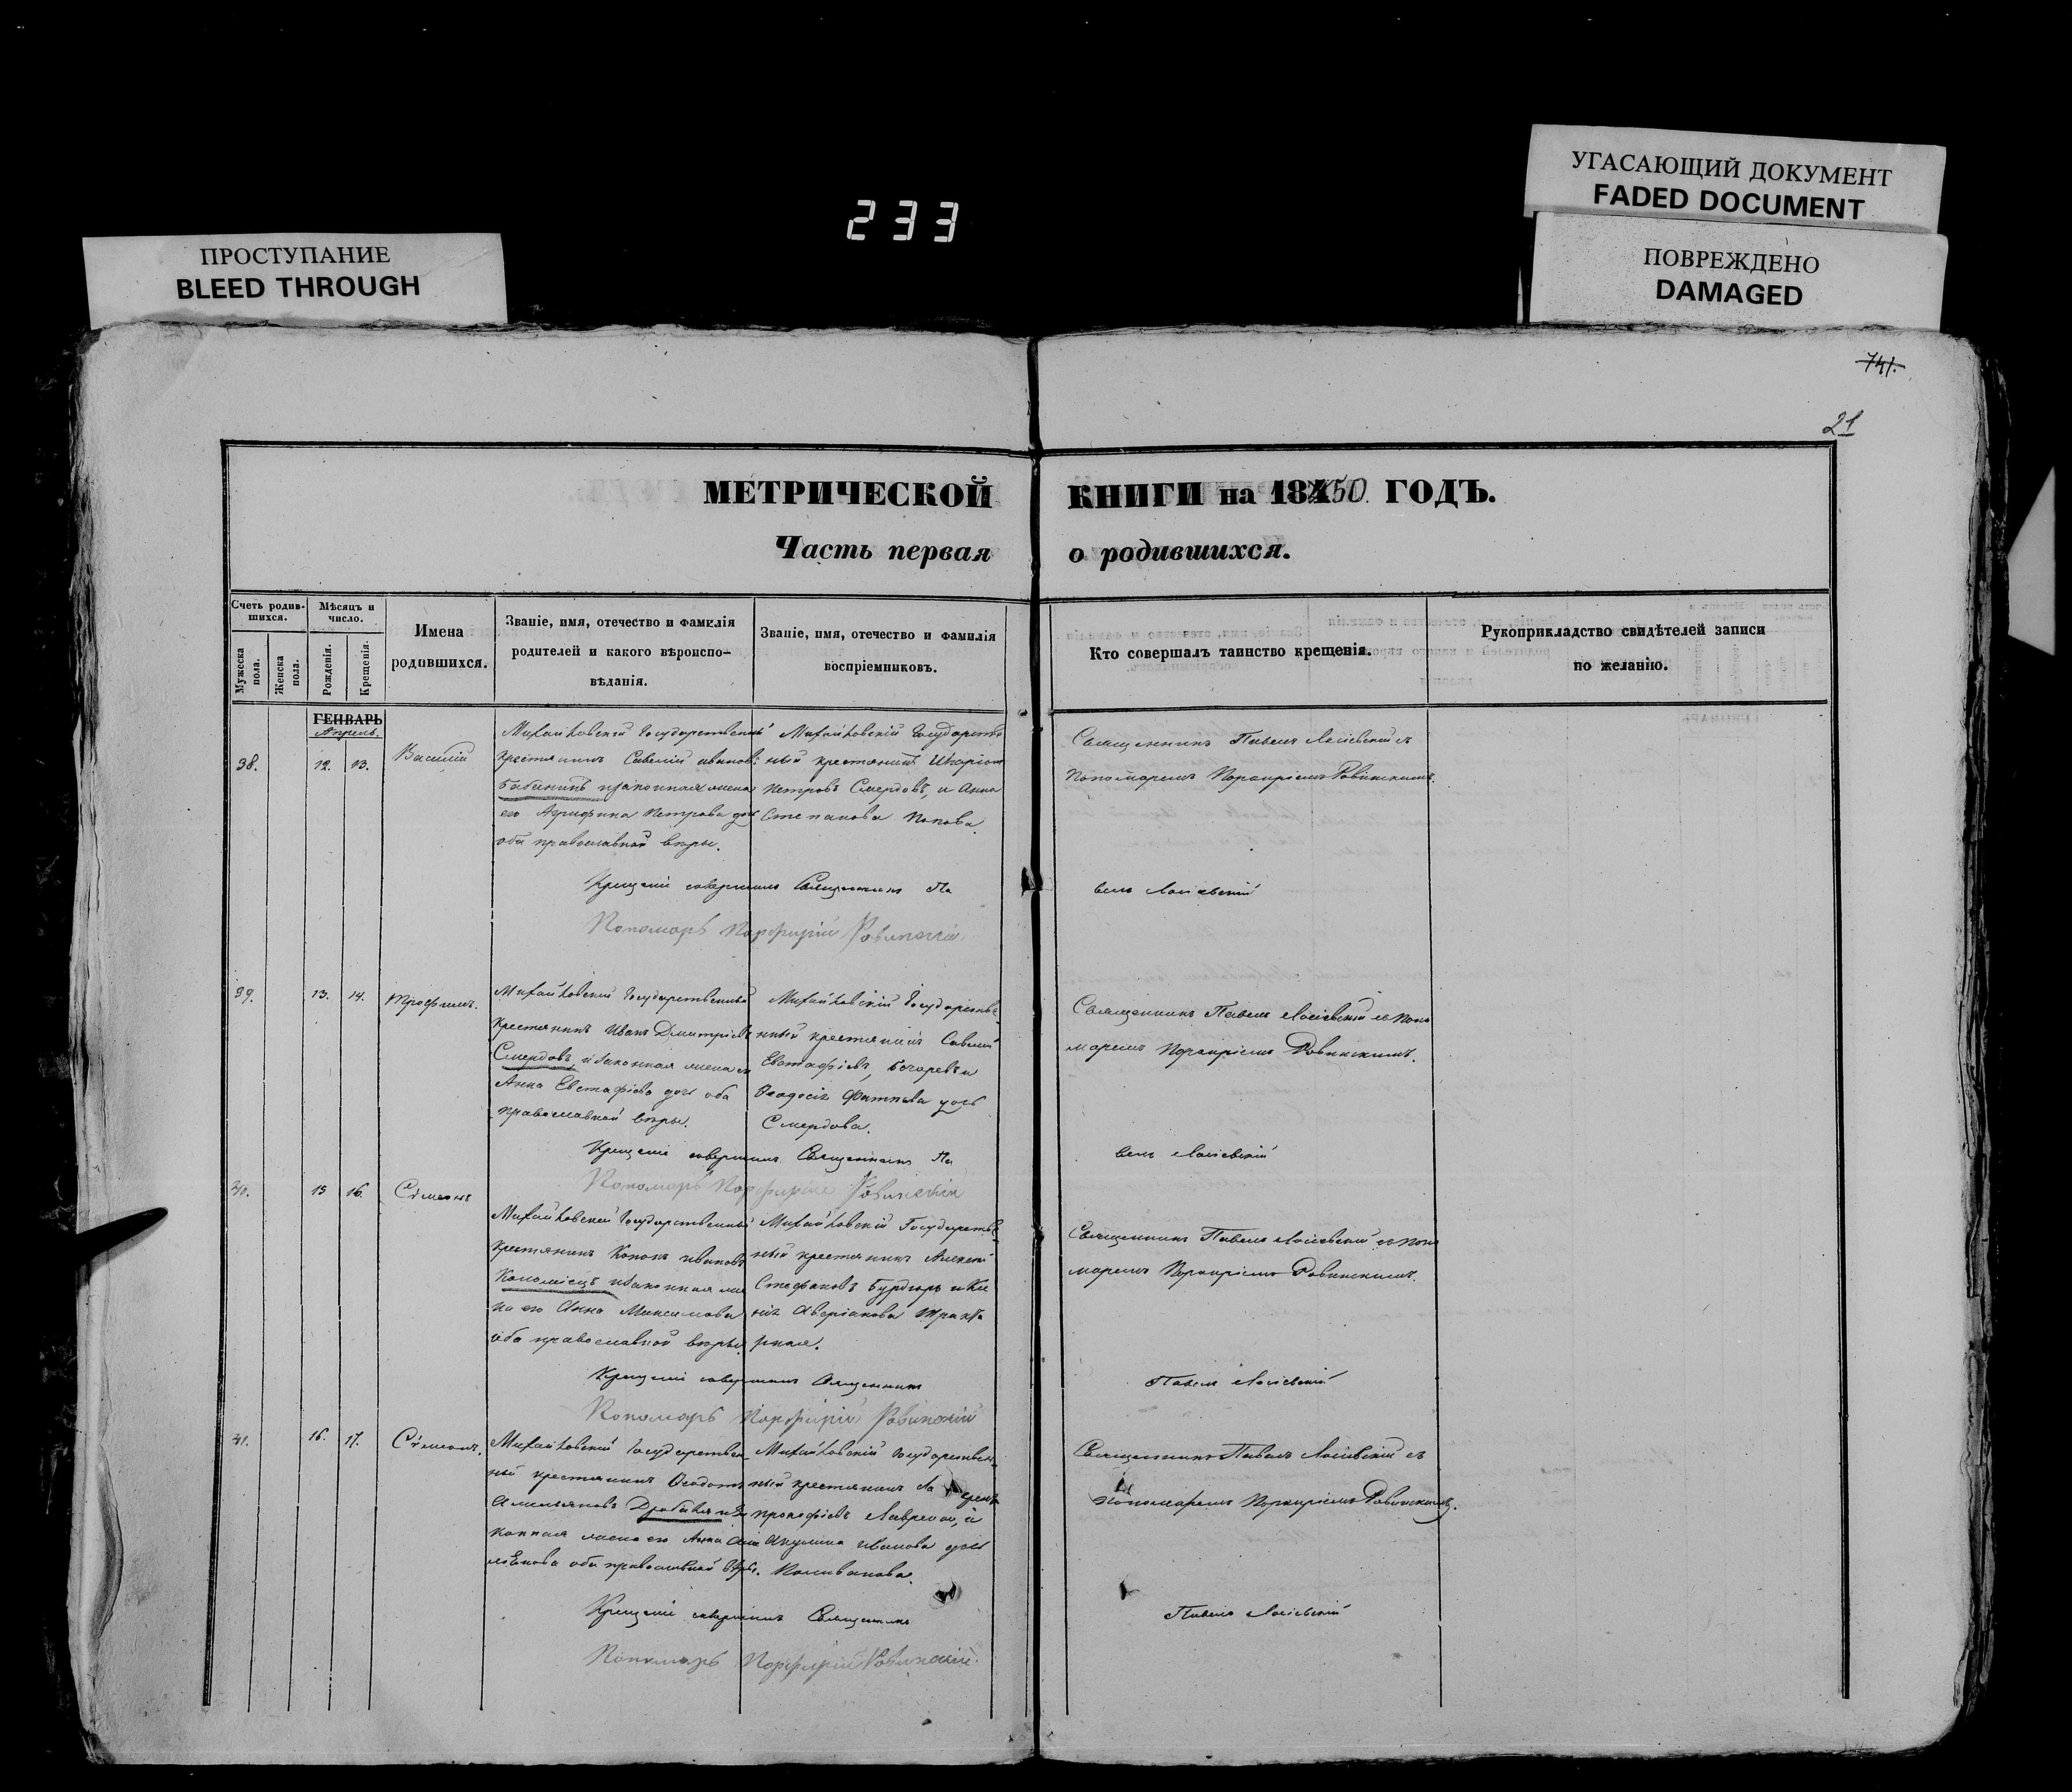 УГАСАЮЩИЙ ДОКУМЕНТ
FADED DOCUMENT
233
ПРОСТУПАНИЕ
BLEED THROUGH
ПОВРЕЖДЕНО
DAMAGED
741.
21
МЕТРИЧЕСКОЙ КНИГИ на 1850 ГОДЪ.
Часть первая о родившихся.
Счетъ родив-
шихся.
Мужеска
пола.
Женска
пола.
Мѣсяцъ и
число.
Рожденія.
Крещенія.
Имена
родившихся.
Званіе, имя, отечество и фамилія
родителей и какого вѣроиспо-
вѣданія.
Званіе, имя, отечество и фамилія
воспріемниковъ.
Кто совершалъ таинство крещенія.
Рукоприкладство свидѣтелей записи
по желанію.
ГЕНВАРЬ
Апрель.
38.
12. 13.
Василій
Михайловскій Государственный
крестьянинъ Савелій Иванов
Бабенинъ и законная жена
его Агрифина Петрова дочь
оба православной вѣры.
Михайловскій Государств
ный крестьянинъ
Петровъ Смердовъ, и Анна
Степанова Попова
Священникъ Павелъ с
Пономаремъ Порфиріемъ Ровинскимъ.
Крещеніе совершилъ Священникъ Па
велъ
Пономарь Порфирій Ровинскій
39.
13. 14.
Трофимъ.
Михайловскій Государственный
крестьянинъ Иванъ Дмитріевъ
Смердовъ и законная жена
Анна Евстафіева дочь оба
православной вѣры.
Михайловскій Государстве
нный крестьянинъ Савелій
Евстафіевъ,
Ѳеодосія дочь
Смердова.
Священникъ Павелъ с Поно
маремъ Порфиріемъ Ровинскимъ.
Крещеніе совершилъ Священникъ Па
велъ
Пономарь Порфирій Ровинскій
40.
15 16.
Сѵмеонъ
Михайловскій Государственный
крестьянинъ Кононъ Ивановъ
Коломіецъ и законная же
на его Анна Максимова
оба православной вѣры
Михайловскій Государстве
ный крестьянинъ Алексей
Стефановъ и Ксе
нія Аверіанова
Священникъ Павелъ с Поно
маремъ Порфиріемъ Ровинскимъ.
Крещеніе совершилъ Священникъ
Павелъ
Пономарь Порфирій Ровинскій
41.
16. 17.
Сѵмеонъ.
Михайловскій Государствен
ный крестьянинъ Ѳеодотъ
Емельяновъ и за
конная жена его Анна
оба православной вѣры.
Михайловскій Государствен
ный крестьянинъ
Прокофіевъ и
Акулина Иванова дочь
Коливанова.
Священникъ Павелъ съ
пономаремъ Порфиріемъ Ровинскимъ.
Крещеніе совершилъ Священникъ
Павелъ
Пономарь Порфирій Ровинскій.